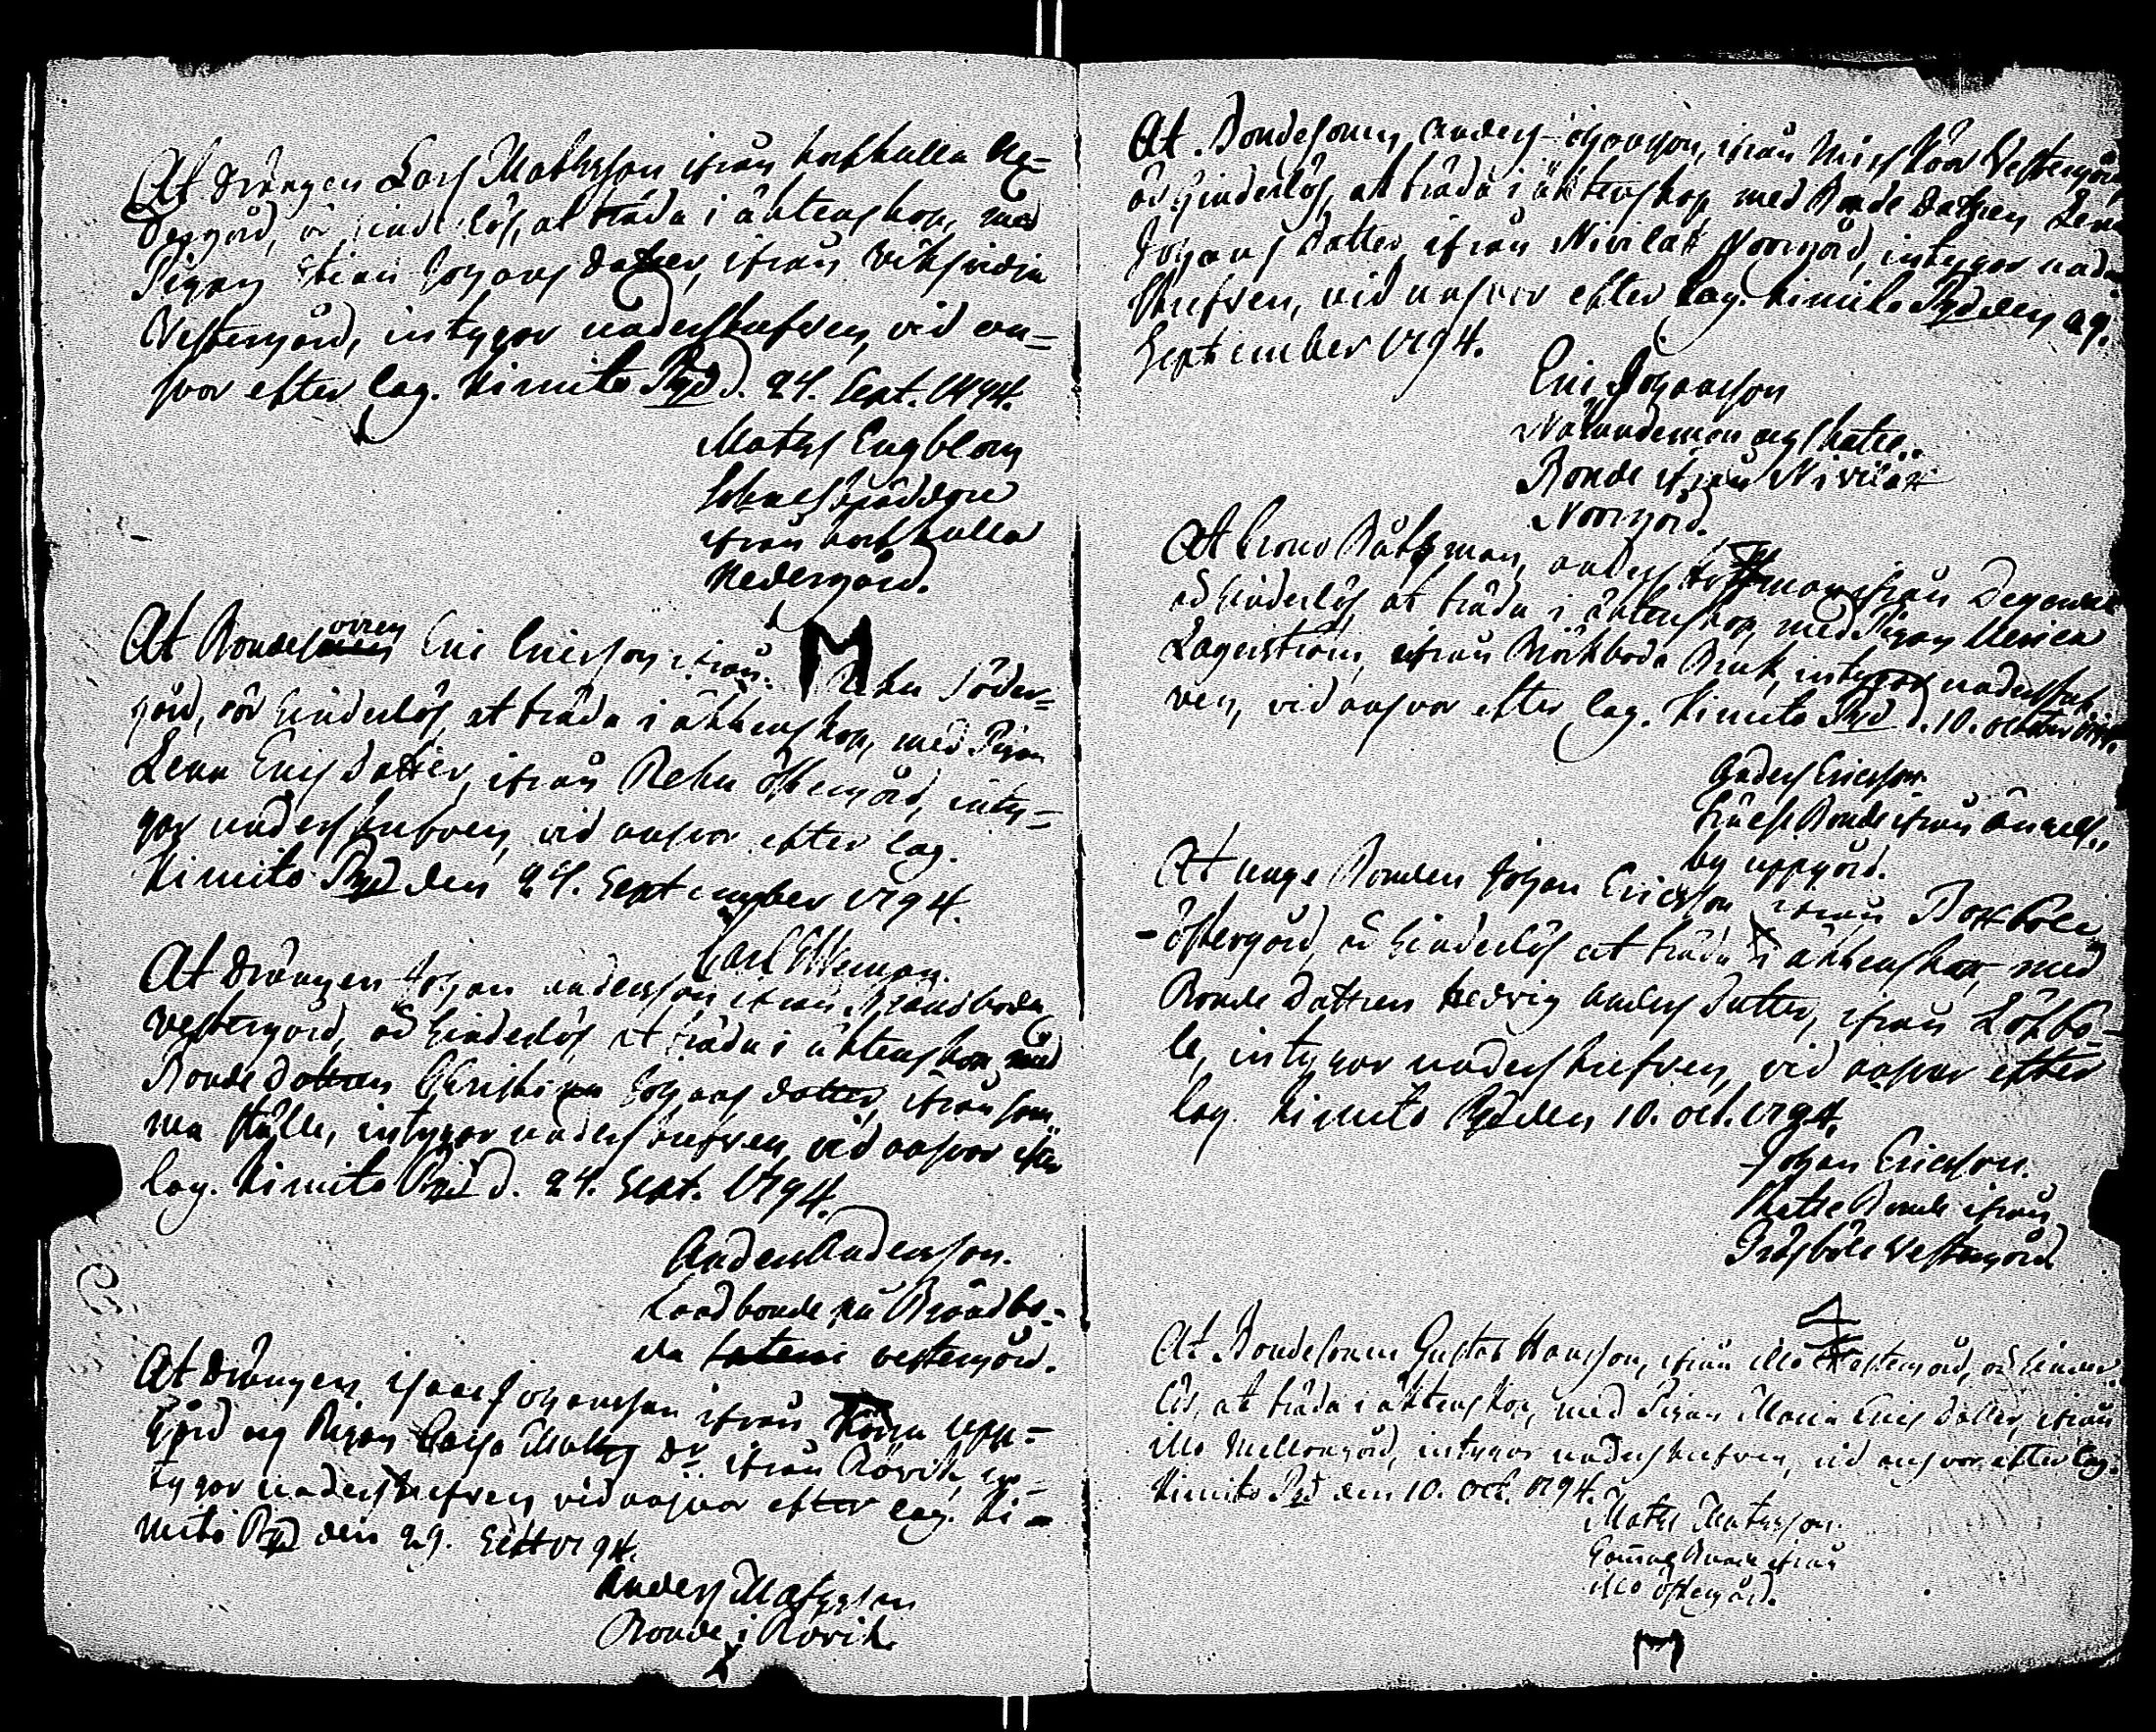 At Drängen Lars Mathsson ifrån korkkulla Ne=
dergård, är hinderlös, at träda i äktenskap, med
Pigan Stina Johans dotter, ifrån Viksvidja
Västergård, intygar underskrefven, vid an=
svar efter lag. Kimito d. 24. Sept. 1794.
Mats Engblom
ifrån korkkulla
Nedergård.
At Bondesonen Eric Ericsson ifrån Reku Söder=
gård, är hinderlös, at träda i äktenskap, med Pigan
Lena Erics dotter, ifrån Reku Östergård, inty=
gar underskrefven, vid ansvar efter lag.
Kimito den 24. September 1794.
Carl
At Drängen Johan Andersson ifrån Brändboda
Vestergård, är hinderlös, at träda i äktenskap med
Bonde dottren Christina Johans dotter, ifrån sam-
ma ställe, intygar underskrefven, vid ansvar efter
lag. Kimito d. 24. Sept. 1794.
Anders Andersson.
Landbonde på Brändbo-
da vestergård.
At drängen Isaac Johansson ifrån upp=
gård og Pigan Caisa Mats Dr. ifrån Rövik, in=
tygar underskrefven vid ansvar efter lag. Ki=
mito den 29. Sept 1794.
Anders Matsson
Bonde i Rövik
At Bondesonen Anders Johansson, ifrån Misskärr Vestergård,
är hinderlös, at träda i äktenskap med Bonde dottren Lena
Johans dotter, ifrån Nivelax Norrgård, intygar under
skrefven, vid ansvar efter Lag. Kimito den 29.
September 1794.
Eric Johansson
Nämndeman og skatte..
Bonde ifrån Nivelax
Norrgård.
At Crono Båtsman, Anders ifrån
är hinderlös, at träda i äktenskap, med Pigan Ulrica
Lagerström, ifrån Björkboda Bruk, intygar underskref-
ven, vid ansvar efter lag. Kimito d. 10. october 1794.
Anders Ericsson
Frälse Bonde ifrån
by uppgård.
At unge Bonden Johan Ericsson ifrån Boxböle
-östergård, är hinderlös at träda i äktenskap, med
Bonde Dottren Hedvig Anders dotter, ifrån Löfbö-
le, intygar underskrefven, vid ansvar efter
lag. Kimito den 10. oct. 1794.
Johan Ericsson.
Skatte Bonde ifrån
Vestergård
At Bondesonen Gustav Hansson, ifrån Mo, är hinder-
lös, at träda i äktenskap, med Pigan Maria Erics dotter, ifrån
Mo Mellangård, intygar underskrefven, vid ansvar efter lag.
Kimito den 10. Oct. 1794.
Mats Matsson.
ifrån
Mo östergård.